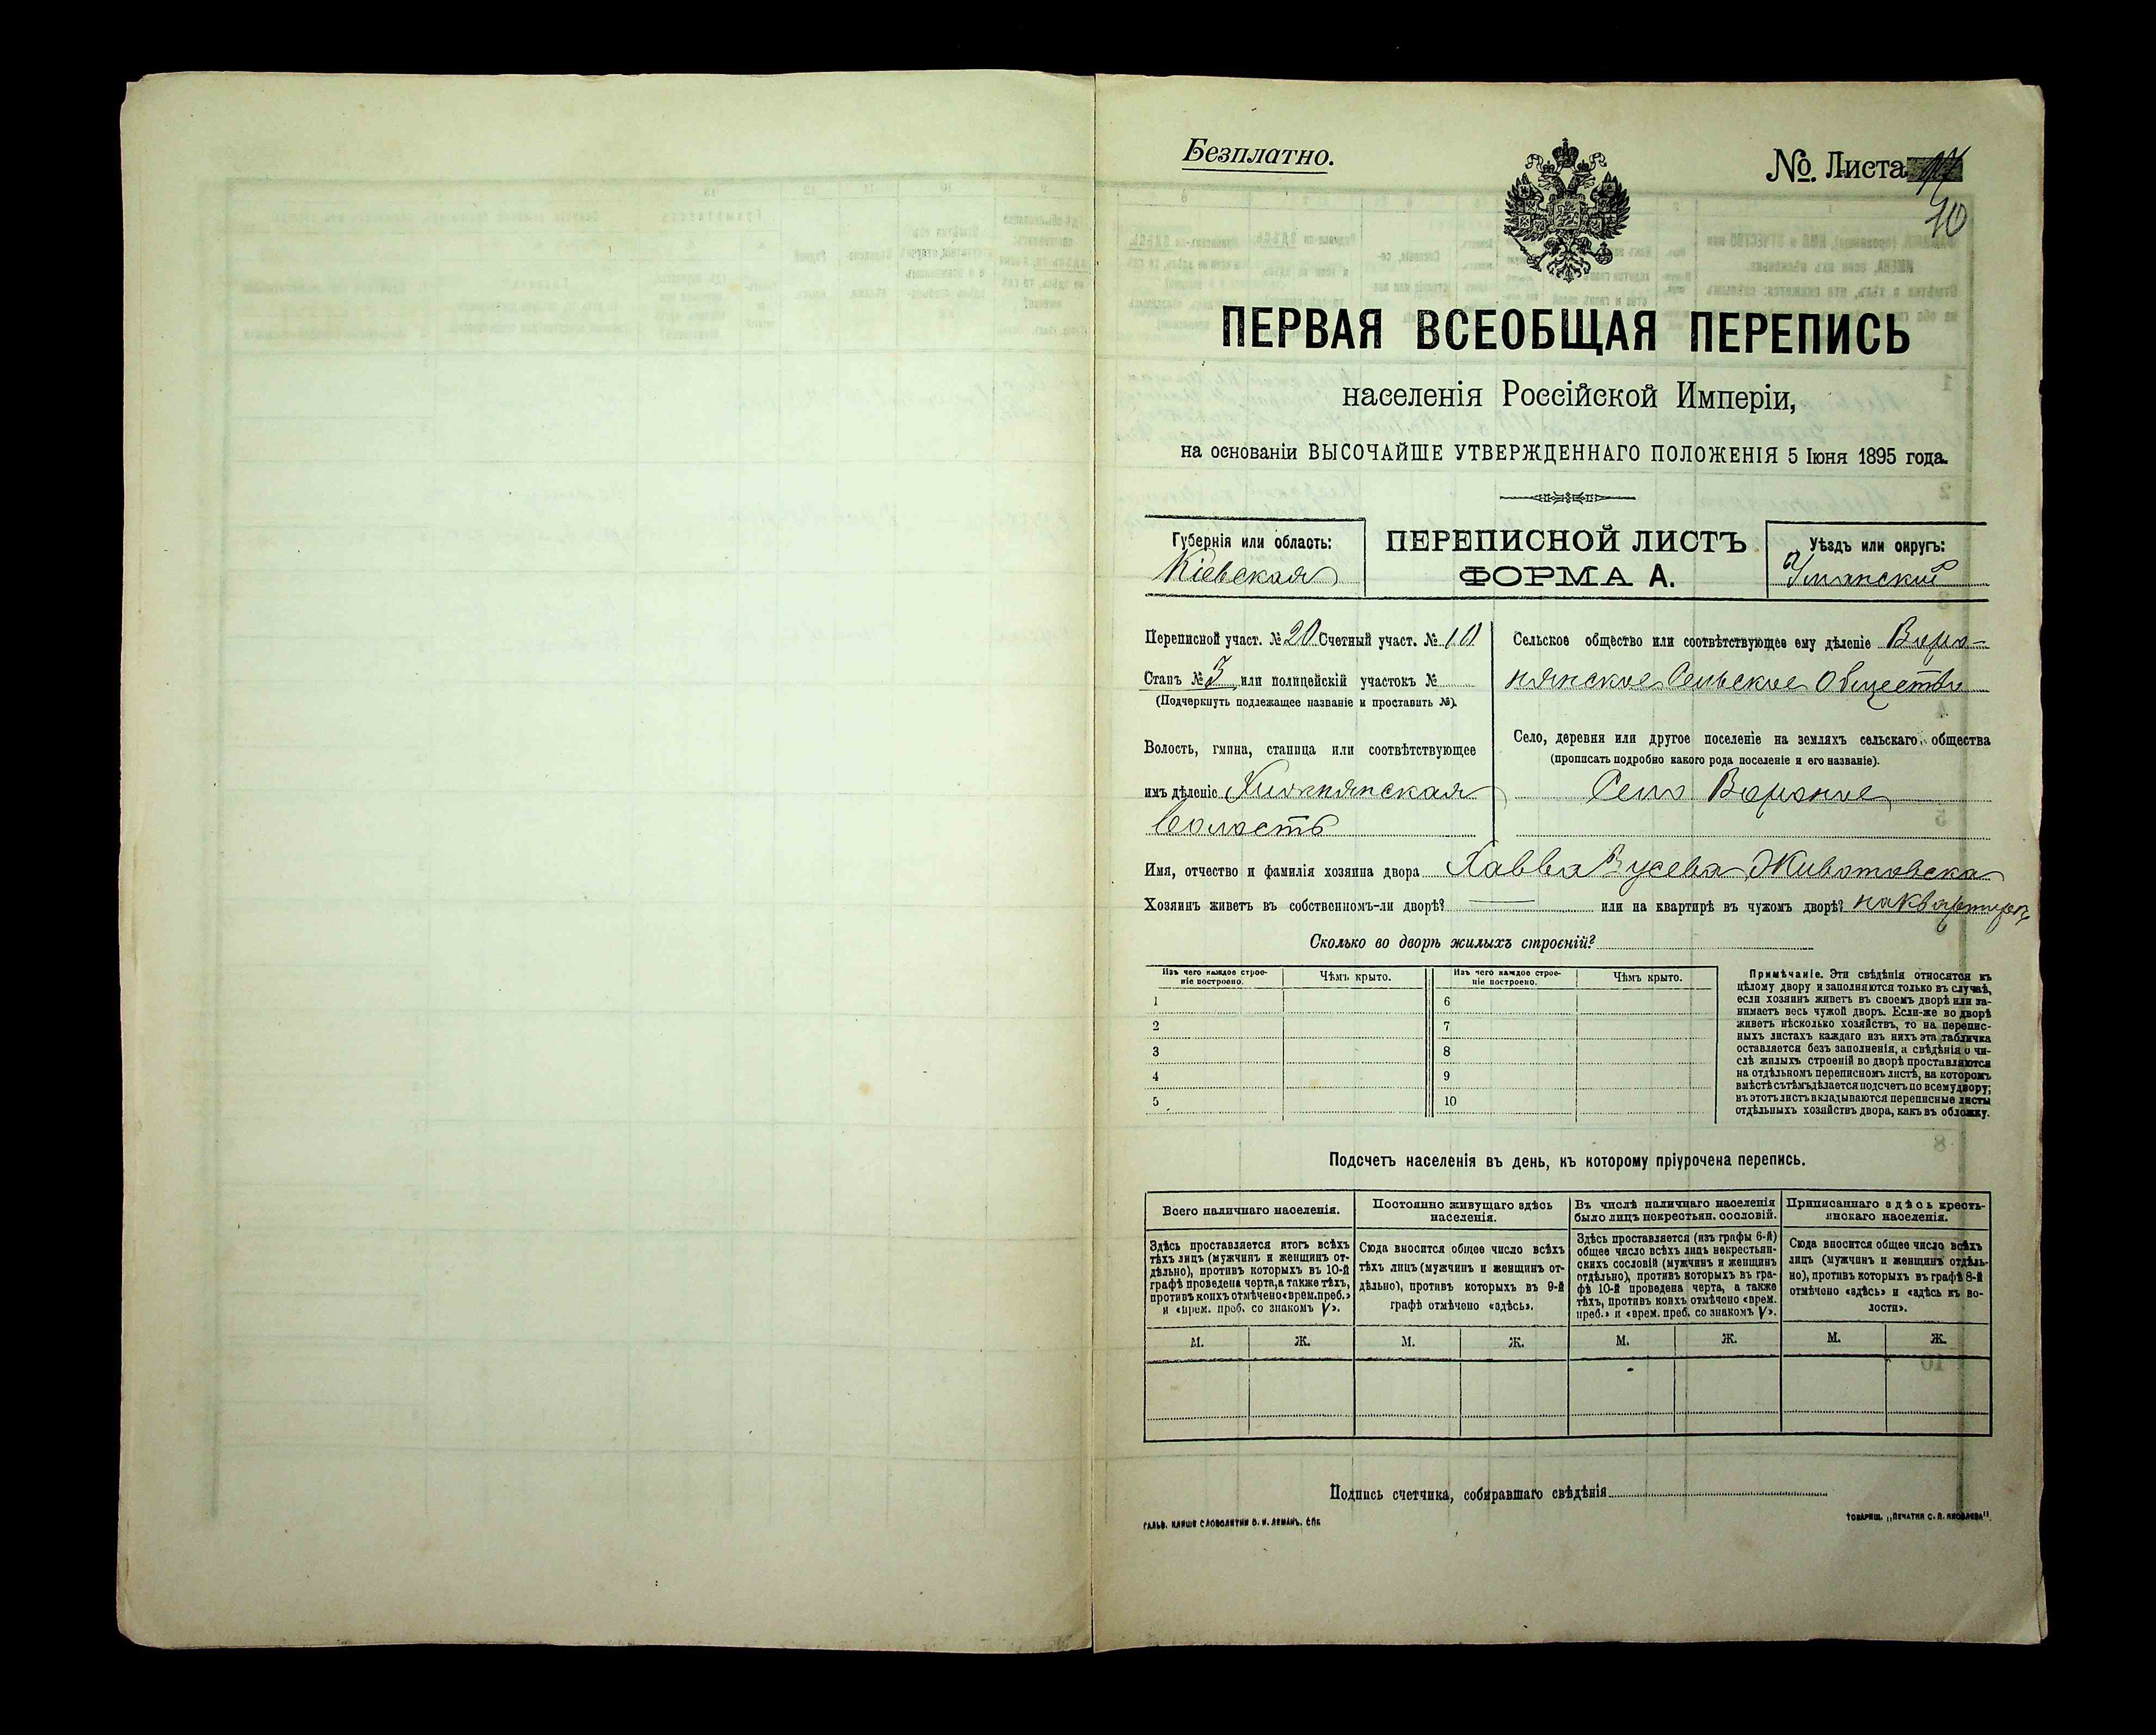 Безплатно.
№. Листа
10
ПЕРВАЯ ВСЕОБЩАЯ ПЕРЕПИСЬ
населенія Россійской Имперіи,
на основаніи ВЫСОЧАЙШЕ УТВЕРЖДЕННАГО ПОЛОЖЕНІЯ 5 Іюня 1895 года.
Губернія или область:
Кіевская
ПЕРЕПИСНОЙ ЛИСТЪ
ФОРМА А.
Уѣздъ или округъ:
Уманскій
Переписной участ. № 20 Счетный участ. № 10
Станъ № 3 или полицейскій участокъ №
(Подчеркнуть подлежащее названіе и проставить №).
Волость, гмина, станица или соотвѣтствующее
имъ дѣленіе
Волость
Сельское общество или соотвѣтствующее ему дѣленіе Воро-
нянское Сельское Общество
Село, деревня или другое поселеніе на земляхъ сельскаго общества
(прописать подробно какого рода поселеніе и его названіе).
Село Вороное
Имя, отчество и фамилія хозяина двора Хавва Животовска
Хозяинъ живетъ въ собственномъ-ли дворѣ? — или на квартирѣ въ чужомъ дворѣ? на квартирѣ
Сколько во дворѣ жилыхъ строеній?
Изъ чего каждое строе-
ніе построено.
Чѣмъ крыто.
Изъ чего каждое строе-
ніе построено.
Чѣмъ крыто.
1 6
2 7
3 8
4 9
5 10
Примѣчаніе. Эти свѣдѣнія относятся къ
цѣлому двору и заполняются только въ случаѣ,
если хозяинъ живетъ въ своемъ дворѣ или за-
нимаетъ весь чужой дворъ. Если-же во дворѣ
живетъ нѣсколько хозяйствъ, то на перепис-
ныхъ листахъ каждаго изъ нихъ эта табличка
оставляется безъ заполненія, а свѣдѣнія о чи-
слѣ жилыхъ строеній во дворѣ проставляются
на отдѣльномъ переписномъ листѣ, на которомъ
вмѣстѣ съ тѣмъ дѣлается подсчетъ по всему двору;
въ этотъ листъ вкладываются переписные листы
отдѣльныхъ хозяйствъ двора, какъ въ обложку.
Подсчетъ населенія въ день, къ которому пріурочена перепись.
Всего наличнаго населенія.
Постоянно живущаго здѣсь
населенія.
Въ числѣ наличнаго населенія
было лицъ некрестьян. сословій.
Приписаннаго здѣсь кресть-
янскаго населенія.
Здѣсь проставляется итогъ всѣхъ
тѣхъ лицъ (мужчинъ и женщинъ от-
дѣльно), противъ которыхъ въ 10-й
графѣ проведена черта, а также тѣхъ,
противъ коихъ отмѣчено «врем. преб.»
и «врем. преб. со знакомъ V».
Сюда вносится общее число всѣхъ
тѣхъ лицъ (мужчинъ и женщинъ от-
дѣльно), противъ которыхъ въ 9-й
графѣ отмѣчено «здѣсь».
Здѣсь проставляется (изъ графы 6-й)
общее число всѣхъ лицъ некрестьян-
скихъ сословій (мужчинъ и женщинъ
отдѣльно), противъ которыхъ въ гра-
фѣ 10-й проведена черта, а также
тѣхъ, противъ коихъ отмѣчено «врем.
преб.» и «врем. преб. со знакомъ V».
Сюда вносится общее число всѣхъ
лицъ (мужчинъ и женщинъ отдѣль-
но), противъ которыхъ въ графѣ 8-й
отмѣчено «здѣсь» и «здѣсь къ во-
лости».
М. Ж. М. Ж. М. Ж. М. Ж.
Подпись счетчика, собиравшаго свѣдѣнія
ГАЛЬВ. КЛИШЕ СЛОВОЛИТНИ О. И. ЛЕМАНЪ, СПБ
ТОВАРИЩ. „ПЕЧАТНЯ С. П. ЯКОВЛЕВА".